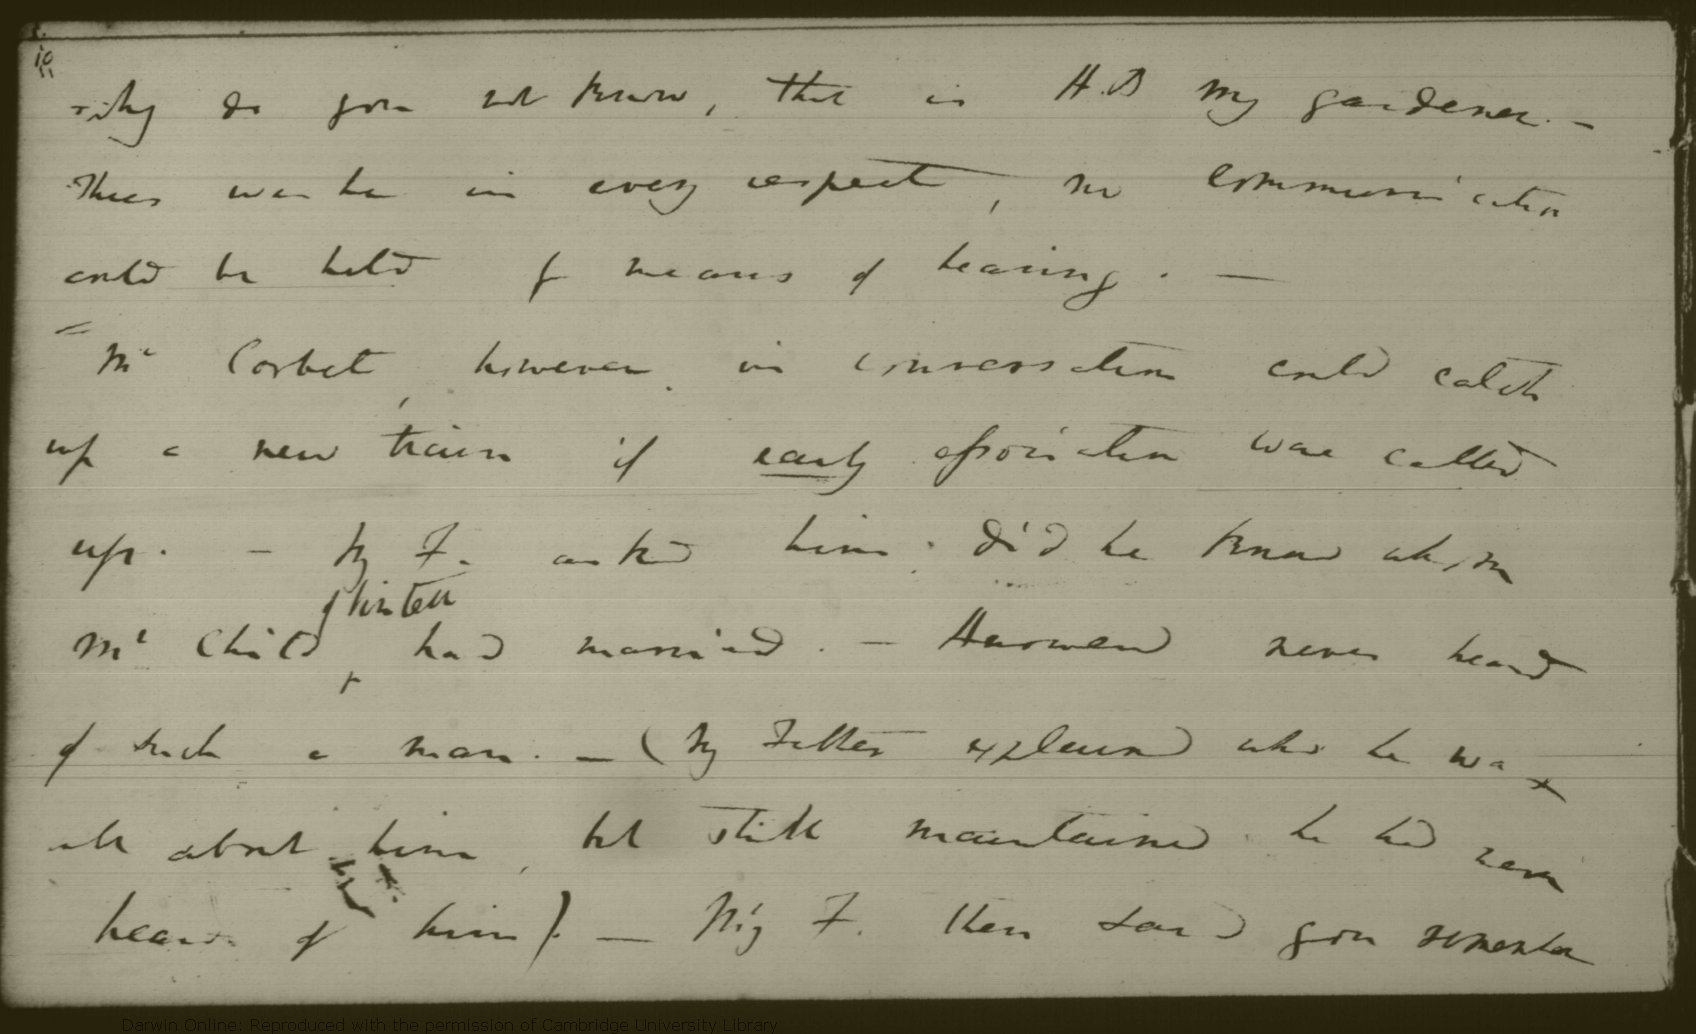 10
why do you not know, that is H.B my gardener. —
Thus was he in every respect, no communication
could be held by means of hearing. —
Mr Corbet, however in conversation could catch
up a new train if early association were called
up. — My F. asked him. did he know whom
of Kinlett
Mr Child, had married. — Answered never heard
of such a man. — (My Father explained who he was
all about him, but still maintained he had never
heard of him). — My F. then said you remember
Darwin Online: Reproduced with the permission of Cambridge University Library